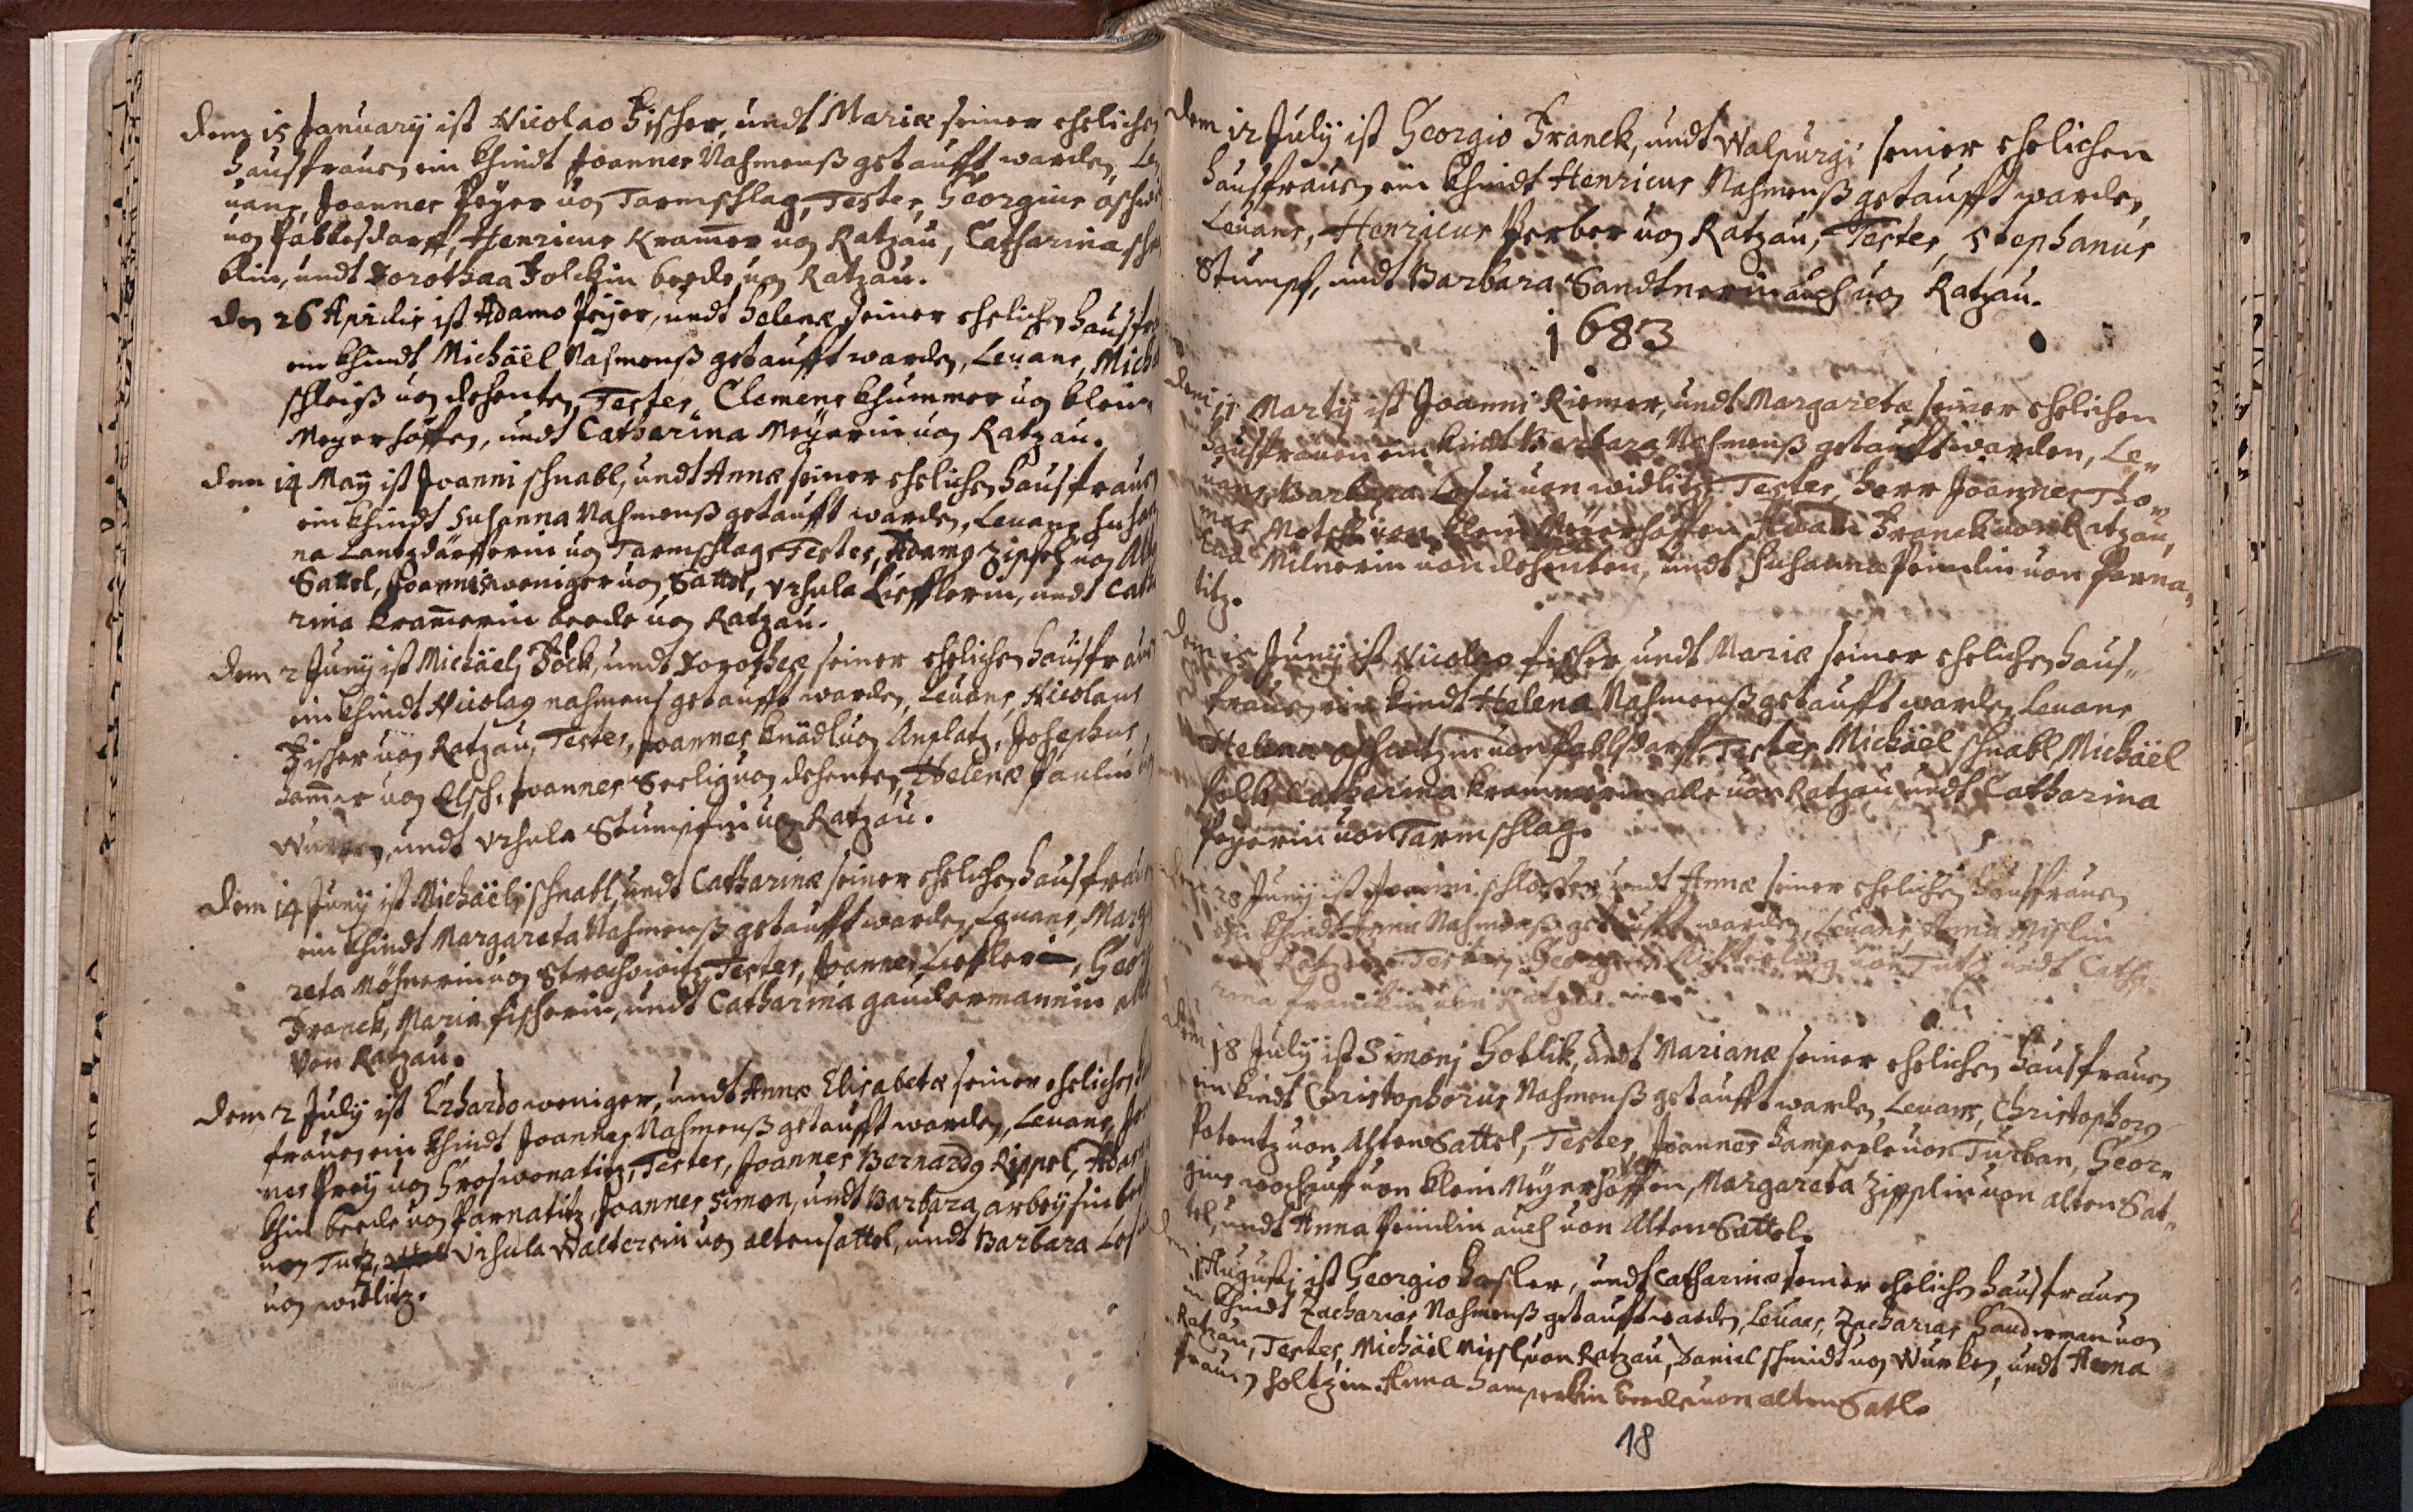 dem 15 January ist Nicolao Fischer, undt Mariæ seiner ehelichen
hausfrauen ein khindt Joannes Nahmenß getaufft warden, Le,,
uans, Joannes Peyer von Tarmschlag, Testes, Georgius
von Pablesdarff, Henricus Kramer von Ratzau, Catharina
undt Dorothaa Folckin beede von Ratzau.
den 26 Aprilis ist Adamo Peyer, undt Helenæ seiner ehelichen
ein khindt Michäel Nahmenß getaufft warden, Leuans,
schleiß von dehenten, Testes, Clemens khummer von klein
Meyerhöffen, undt Catharina Meyerin von Ratzau.
dem 14 May ist Joanni schnabl, undt Annæ seiner ehelichen hausfrauen
ein khindt Susanna Nahmenß getaufft warden, Leuans
na Lantzdärfferin von Tarmschlag, Testes, Adamus Zipfel von
Sattel, Joannes weniger von Sattel, Vrsula Liefflerin, undt
rina kramerin beede von Ratzau.
dem 2 Juny ist Michäeli Föck, undt Dorotheæ seiner ehelichen hausfrauen
ein khindt Nicolaus nahmens getaufft warden, Leuans, Nicolaus
Fischer von Ratzau, Testes, Joannes knädl von Anplatz, Josephus
hamer von Elsch, Joannes Seelig von dehenten, Helenæ Paulin
undt Vrsula Stumpfin von Ratzau.
dem 14 Juny ist Michäeli schnabl, undt Catharinæ seiner ehelichen hausfrauen
ein khindt Margareta Nahmenß getaufft warden, Leuans,
reta Möhnerin von Strachowitz, Testes, Joannes Liefler,
Franck, Maria fischerin, undt Catharina gaudermannin
Von Ratzau.
dem 2 July ist Erhardo weniger, undt Annæ Elisabetæ seiner ehelichen
frauen ein khindt Joannes Nahmenß getaufft warden, Leuans,
nes Frey von Groswonatitz, Testes, Joannes Bernardus Rippel,
khin beede von Parnatitz, Joannes Simon, undt Barbara
von Tutz, Vrsula Walterin von altensattel, undt Barbara
von widlitz.
dem 12 July ist Georgio Franck, undt Walpurgi seiner ehelichen
hausfrauen ein khindt Henricus Nahmenß getaufft warden,
Leuans, Henricus Perber von Ratzau, Testes, Stephanus
Stumpf, undt Barbara Sandtnerin auch von Ratzau.
1683
dem 11 Marty ist Joanni Riemer, undt Margaretæ seiner ehelichen
hausfrauen ein kindt Barbara Nahmenß getaufft warden, Le,,
uans, Barbara Lesin von widlitz, Testes, herr Joannes Tho,,
mas Motsch von klein Meyerhöffen, Adam Franck von Ratzau,
Eua Milnerin von dehenten, undt Susanna Peimlin von Parna,,
titz.
dem 15 Juny ist Nicolao fischer undt Mariæ seiner ehelichen haus,,
frauen ein kindt Helena Nahmenß getaufft warden, Leuans
Helena von Pablsdarff, Testes Michäel schnabl, Michäel
folck, Catharina krammerin alle von Ratzau, undt Catharina
Peyerin von Tarmschlag.
dem 28 Juny ist Joanni schlosser undt Annæ seiner ehelichen hausfrauen
ein khindt Anna Nahmenß getaufft warden, Leuans, Anna Mislin
von Ratzau, Testes, Georgius von Tutz, undt Catha,,
rina franckin von Ratzau.
dem 18 July ist Simoni Gotlik, undt Marianæ seiner ehelichen hausfrauen
ein kindt Christophorus Nahmenß getaufft warden, Leuans, Christophorus
Potentz von AltenSattel, Testes, Joannes hamperle von Turban, Geor,,
gius von klein Meyerhöffen, Margareta Zipplin von alten Sat,,
tel, undt Anna Peimlin auch von AltenSattel.
Augusti ist Georgio hasler, undt Catharinæ seiner ehelichen hausfrauen
ein khindt Zacharias Nahmenß getaufft warden, Leuans, Zacharias Gauderman von
Ratzau, Testes, Michäel Misl von Ratzau, Daniel schmidt von Wurken, undt Anna
frauen holtzin Anna hamperlin beede von alten Satl.
18